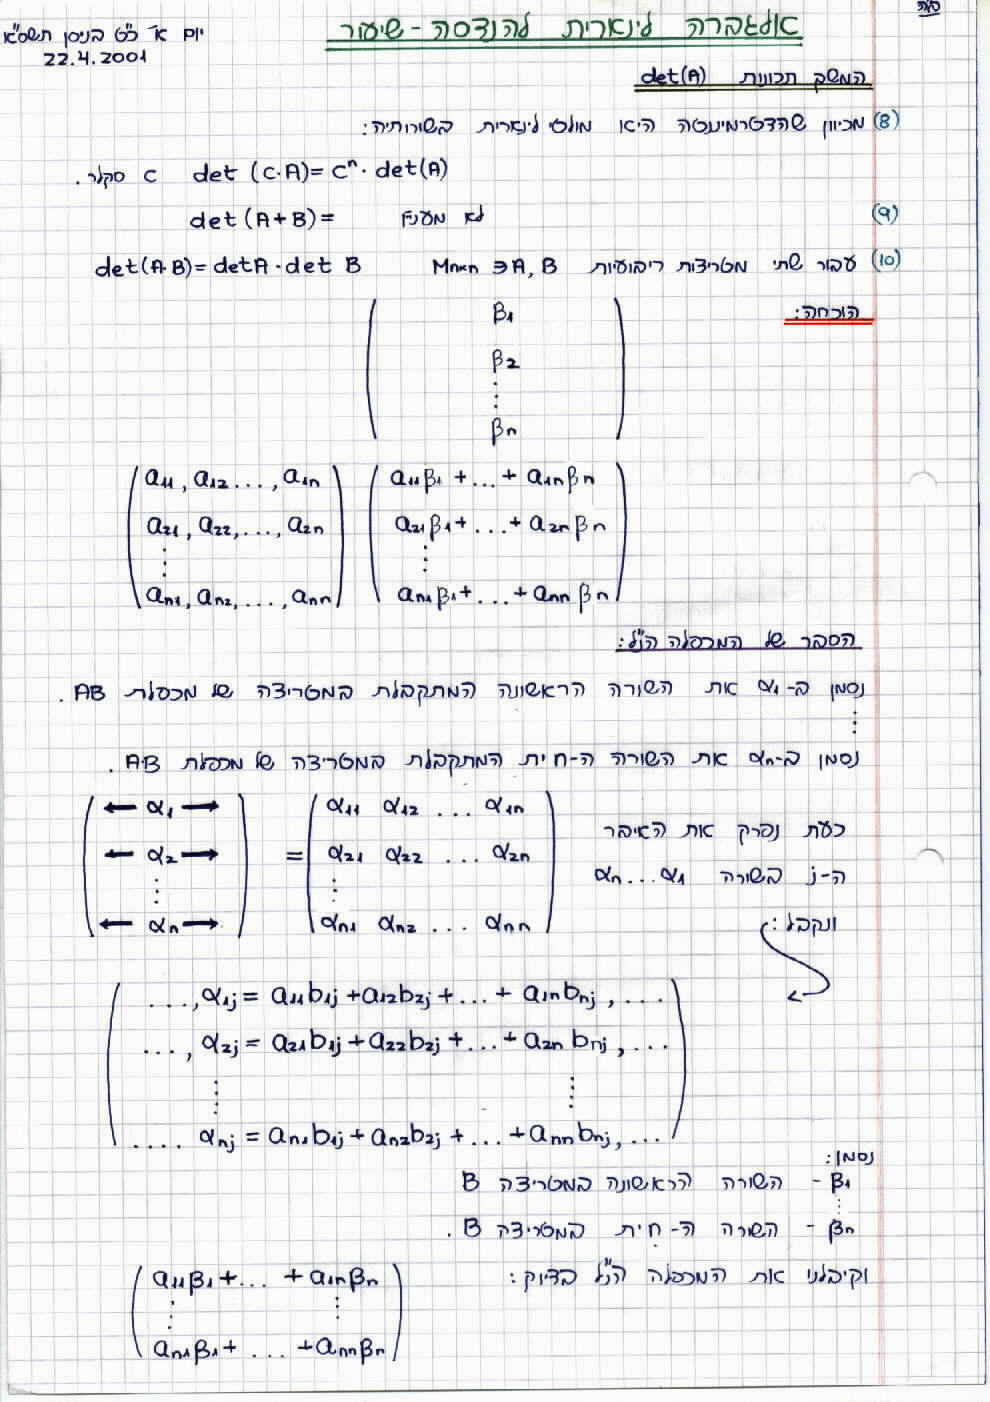 בע"ה
אלגברה לינארית להנדסה - שיעור
יום א' כ"ט בניסן תשס"א
22.4.2001
המשך תכונות det(A)
(8) מכיוון שהדטרמיננטה היא מולטי לינארית בשורותיה:
det (c·A) = cⁿ · det(A) c סקלר.
(9) det (A+B) = לא מעניין
(10) עבור שתי מטריצות ריבועיות Mn×n ∋ A, B det(A·B) = detA · det B
הוכחה:
β1
β2
⋮
βn
a11, a12 ..., a1n a11β1 + ... + a1nβn
a21, a22, ..., a2n a21β1 + ... + a2nβn
⋮ ⋮
an1, an2, ..., ann an1β1 + ... + annβn
הסבר של המכפלה הנ"ל:
נסמן ב-α1 את השורה הראשונה המתקבלת במטריצה של מכפלת AB.
⋮
נסמן ב-αn את השורה ה-n ית המתקבלת במטריצה של מכפלת A·B.
← α1 → α11 α12 ... α1n
← α2 → = α21 α22 ... α2n
⋮ ⋮
← αn → αn1 αn2 ... αnn
כעת נפרק את האיבר
ה-j בשורה α1...αn
ונקבל:
..., α1j = a11b1j + a12b2j + ... + a1nbnj, ...
..., α2j = a21b1j + a22b2j + ... + a2nbnj, ...
⋮ ⋮
.... αnj = an1b1j + an2b2j + ... + annbnj, ...
נסמן:
β1 - השורה הראשונה במטריצה B
⋮
βn - השורה ה-n ית במטריצה B.
וקיבלנו את המכפלה הנ"ל בדיוק:
a11β1 + ... + a1nβn
⋮ ⋮
an1β1 + ... + annβn